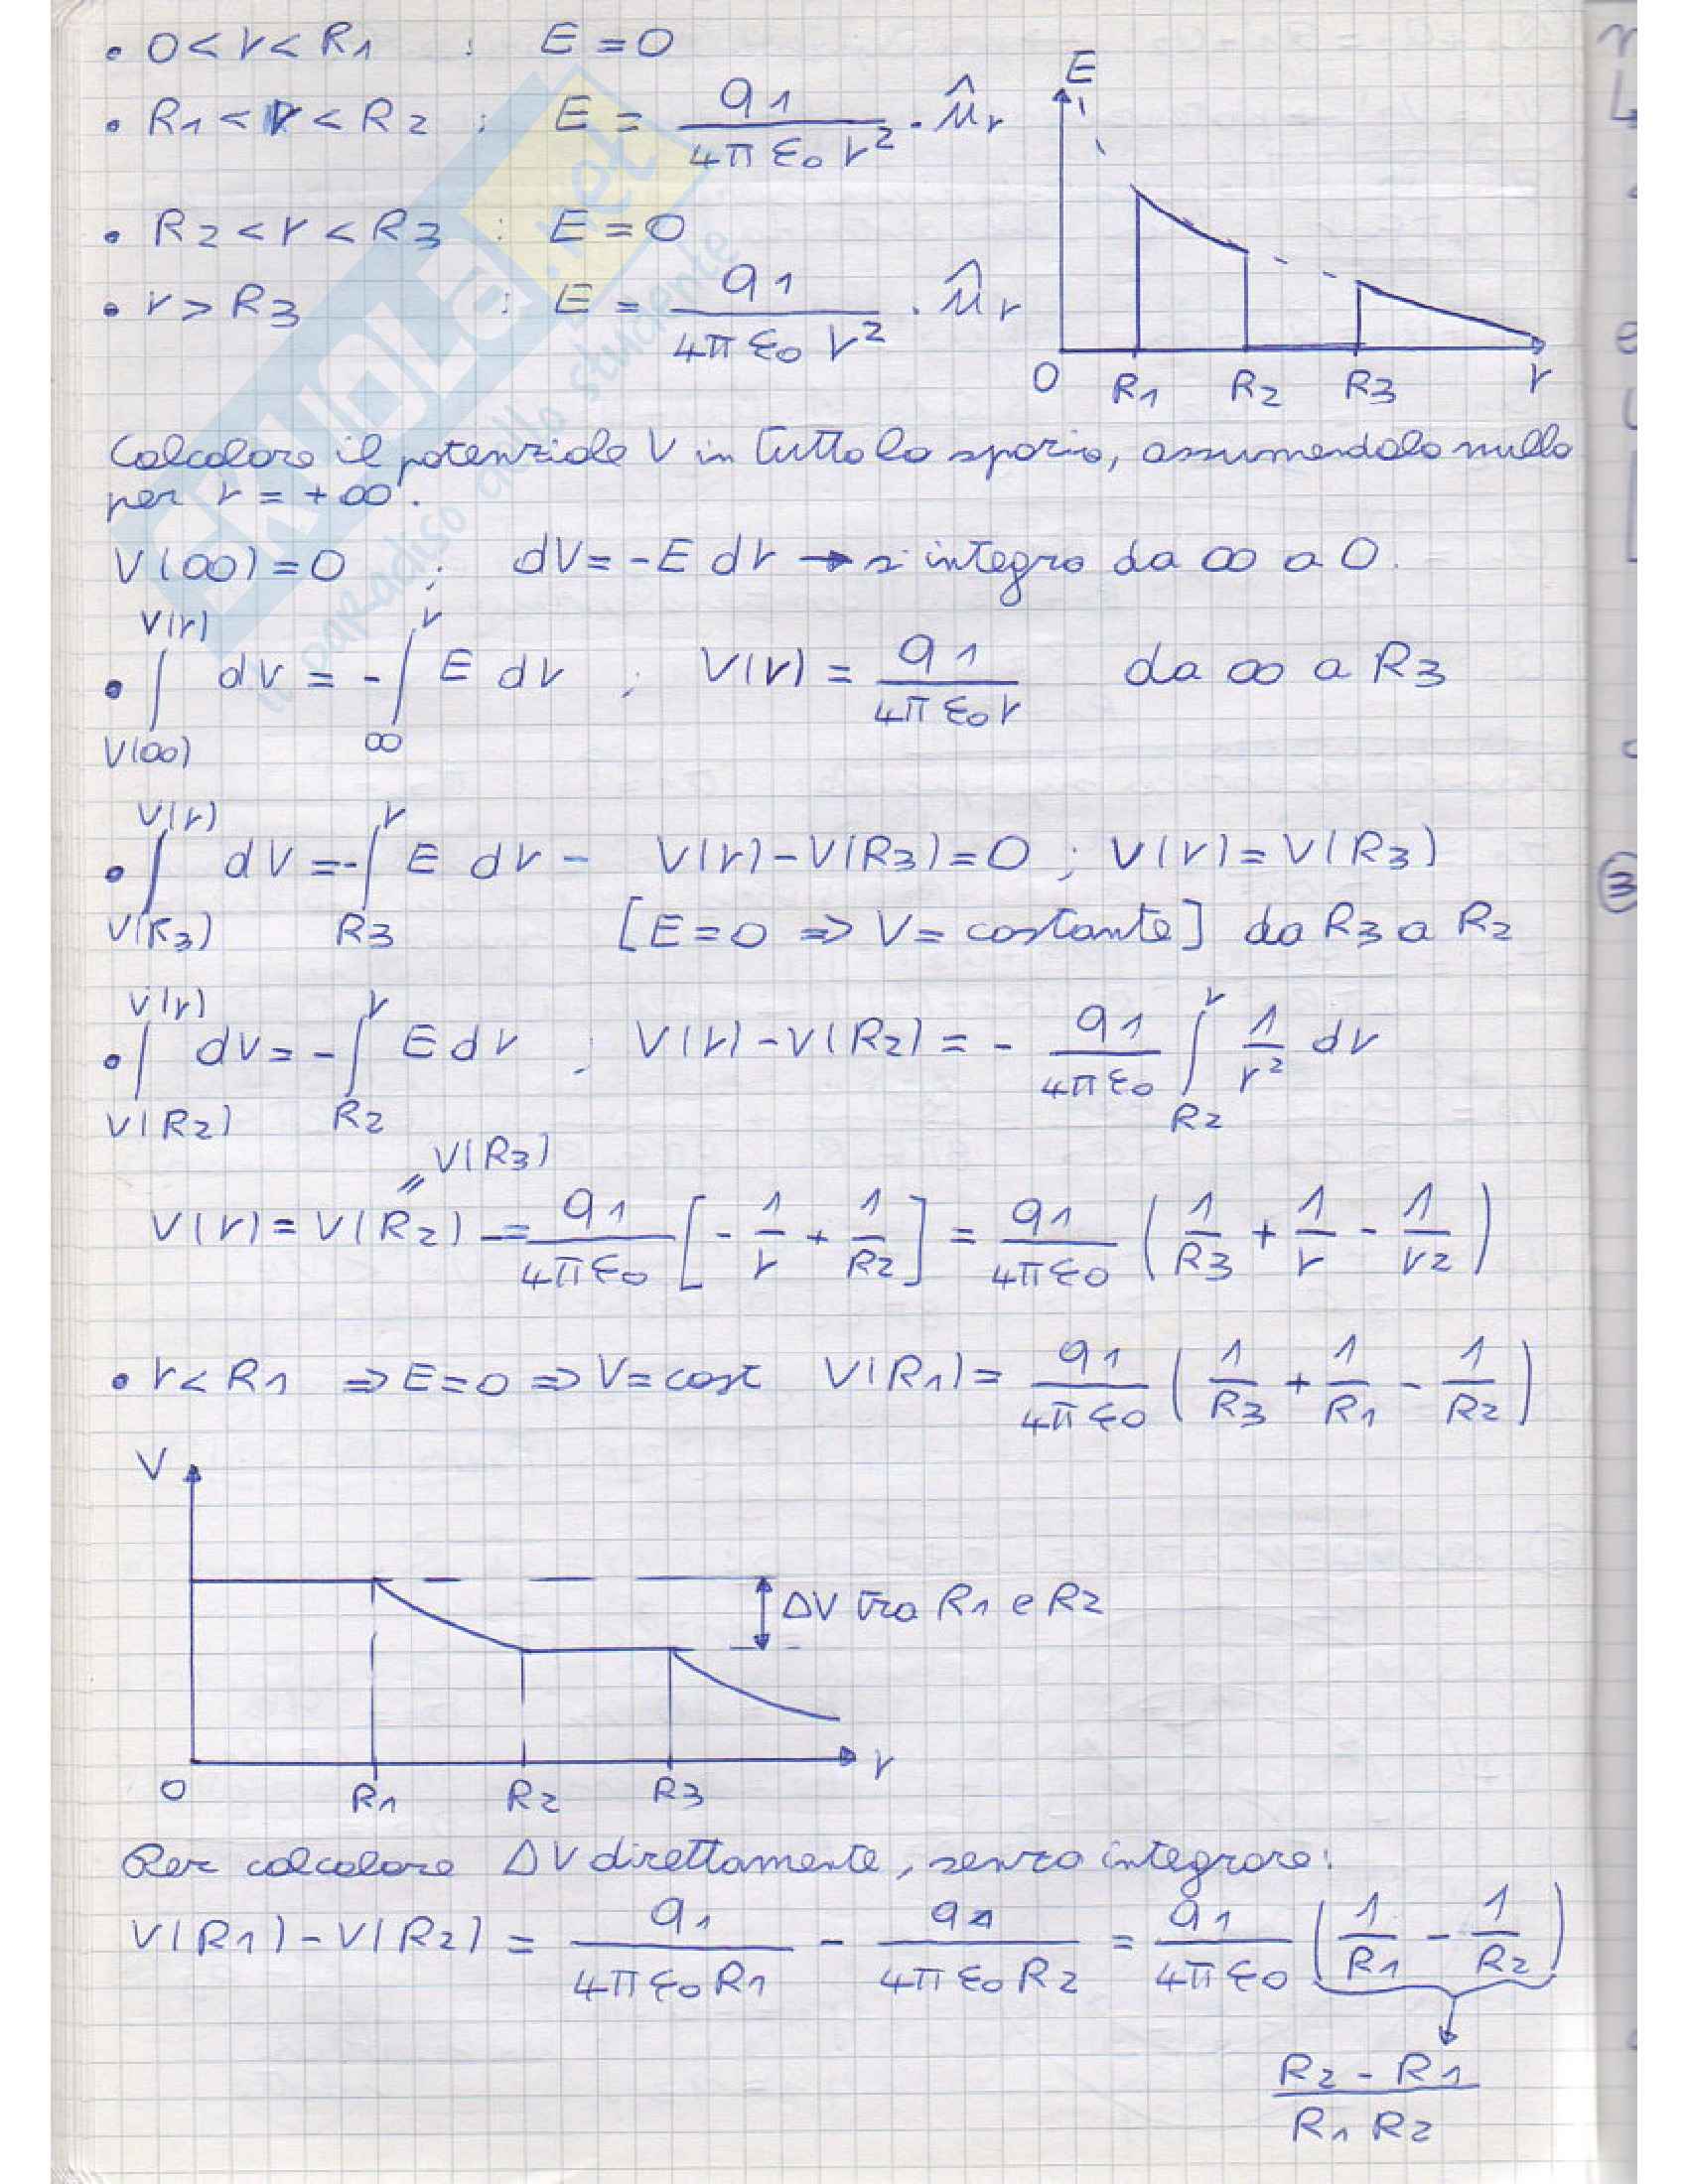 • 0 < r < R1 : E = 0
• R1 < r < R2 : E = q1 / 4πε0 r² · û_r
• R2 < r < R3 : E = 0
• r > R3 : E = q1 / 4πε0 r² · û_r
E
0 R1 R2 R3 r
Calcolare il potenziale V in tutto lo spazio, assumendolo nullo
per r = +∞.
V(∞) = 0 ; dV = -E dr → si integra da ∞ a 0.
• ∫_{V(∞)}^{V(r)} dV = -∫_{∞}^{r} E dr ; V(r) = q1 / 4πε0 r da ∞ a R3
• ∫_{V(R3)}^{V(r)} dV = -∫_{R3}^{r} E dr - V(r) - V(R3) = 0 ; V(r) = V(R3)
[E = 0 ⇒ V = costante] da R3 a R2
• ∫_{V(R2)}^{V(r)} dV = -∫_{R2}^{r} E dr ; V(r) - V(R2) = - q1 / 4πε0 ∫_{R2}^{r} 1/r² dr
= V(R3)
V(r) = V(R2) - q1 / 4πε0 [ - 1/r + 1/R2 ] = q1 / 4πε0 ( 1/R3 + 1/r - 1/r2 )
• r < R1 ⇒ E = 0 ⇒ V = cost V(R1) = q1 / 4πε0 ( 1/R3 + 1/R1 - 1/R2 )
V
ΔV tra R1 e R2
0 R1 R2 R3 r
Per calcolare ΔV direttamente, senza integrare:
V(R1) - V(R2) = q1 / 4πε0 R1 - q1 / 4πε0 R2 = q1 / 4πε0 ( 1/R1 - 1/R2 )
R2 - R1 / R1 R2
3
SKUOLa.net
il paradiso dello studente